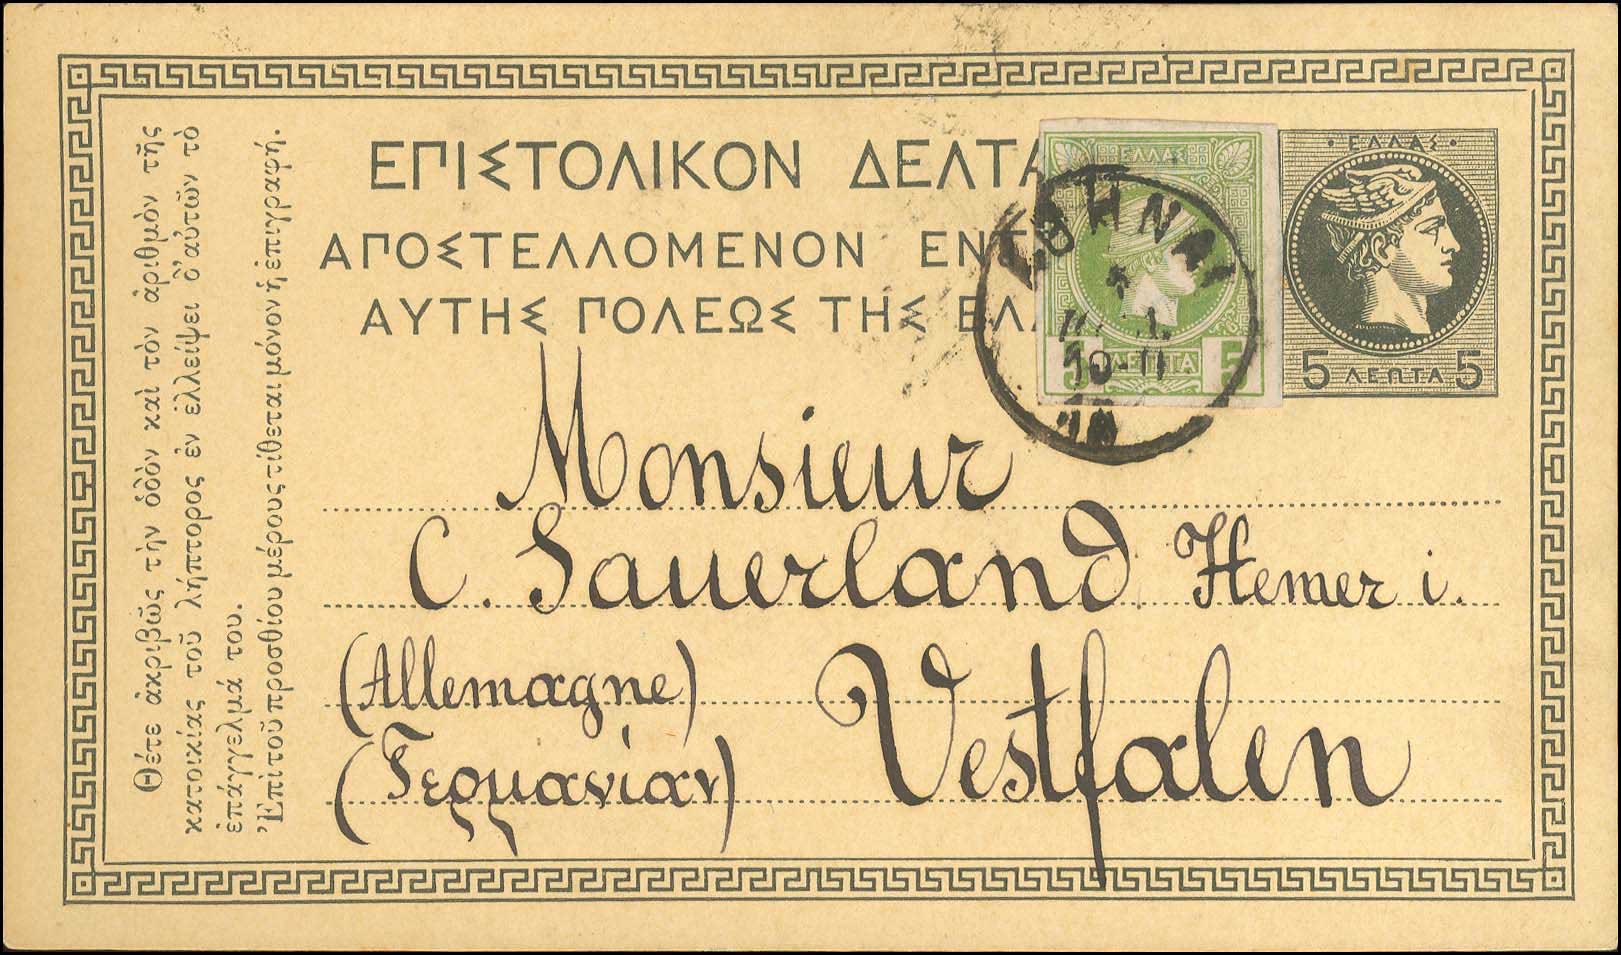 Θέτε ἀκριβῶς τὴν ὁδὸν καὶ τὸν ἀριθμὸν τῆς
κατοικίας τοῦ λήπτορος ἐν ἐλλείψει δ'αὐτῶν τὸ
ἐπάγγελμά του.
Ἐπὶ τοῦ προσθίου μέρους τίθεται μόνον ἡ ἐπιγραφή.
ΕΠΙΣΤΟΛΙΚΟΝ ΔΕΛΤΑ
ΑΠΟΣΤΕΛΛΟΜΕΝΟΝ ΕΝΤ
ΑΥΤΗΣ ΠΟΛΕΩΣ ΤΗΣ ΕΛΛ
ΕΛΛΑΣ
5 ΛΕΠΤΑ 5
ΑΘΗΝΑΙ
10-11
ΕΛΛΑΣ
5 ΛΕΠΤΑ 5
Monsieur
C. Sauerland Hemer i.
(Allemagne) Vestfalen
(Γερμανίαν)